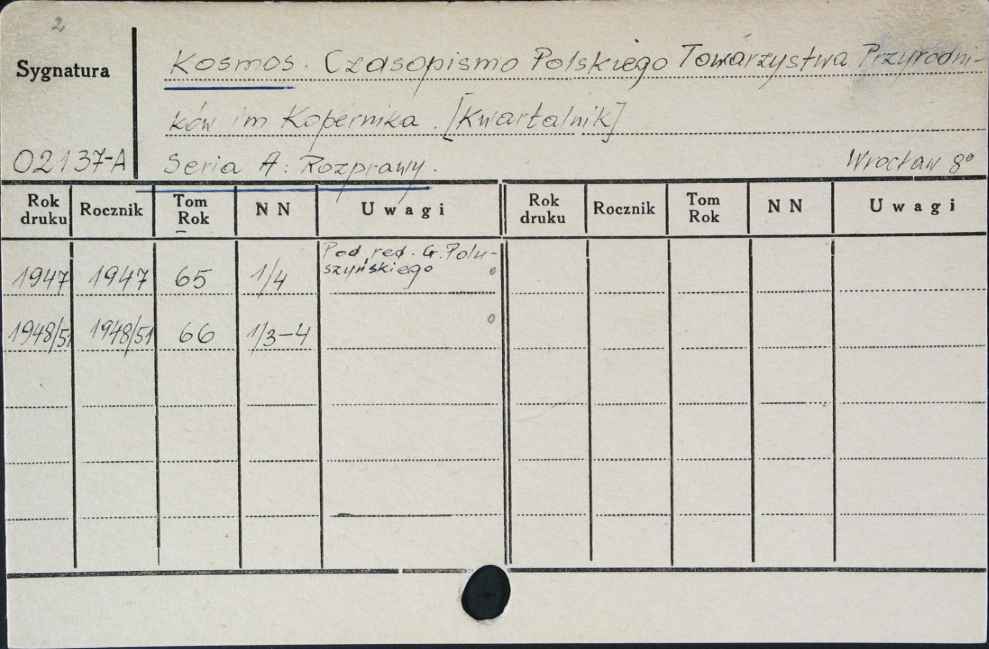 2
Sygnatura
Kosmos. Czasopismo Polskiego Towarzystwa Przyrodni-
ków im Kopernika. [Kwartalnik]
02137-A
Seria A: Rozprawy.
Wrocław 8°
Rok druku Rocznik Tom Rok NN Uwagi Rok druku Rocznik Tom Rok NN Uwagi
1947 1947 65 1/4 Pod red. G. Polu-
szyńskiego
1948/51 1948/51 66 1/3-4